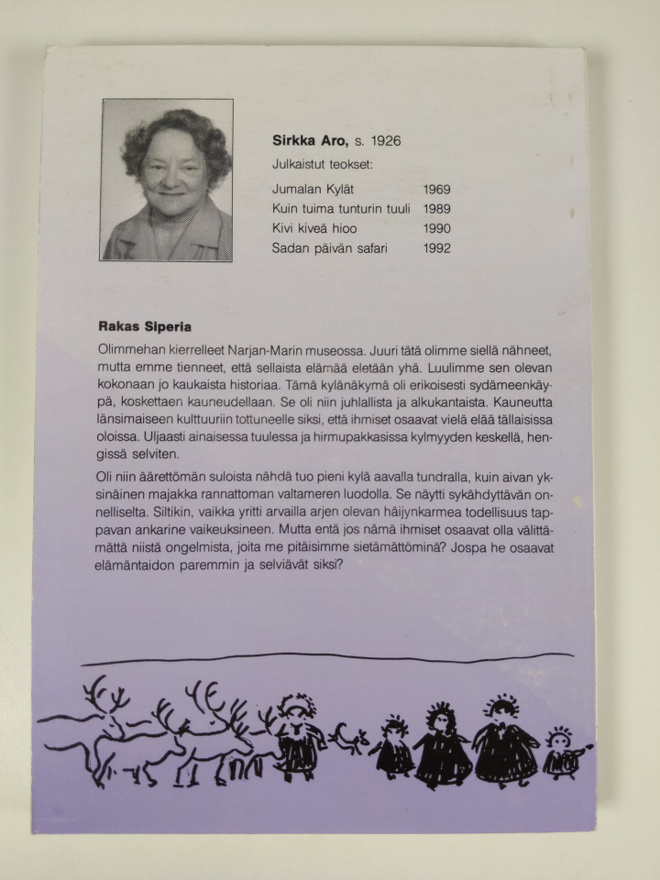 Sirkka Aro, s. 1926
Julkaistut teokset:
Jumalan Kylät 1969
Kuin tuima tunturin tuuli 1989
Kivi kiveä hioo 1990
Sadan päivän safari 1992
Rakas Siperia
Olimmehan kierrelleet Narjan-Marin museossa. Juuri tätä olimme siellä nähneet,
mutta emme tienneet, että sellaista elämää eletään yhä. Luulimme sen olevan
kokonaan jo kaukaista historiaa. Tämä kylänäkymä oli erikoisesti sydämeenkäy-
pä, koskettaen kauneudellaan. Se oli niin juhlallista ja alkukantaista. Kauneutta
länsimaiseen kulttuuriin tottuneelle siksi, että ihmiset osaavat vielä elää tällaisissa
oloissa. Uljaasti ainaisessa tuulessa ja hirmupakkasissa kylmyyden keskellä, hen-
gissä selviten.
Oli niin äärettömän suloista nähdä tuo pieni kylä aavalla tundralla, kuin aivan yk-
sinäinen majakka rannattoman valtameren luodolla. Se näytti sykähdyttävän on-
nelliselta. Siltikin, vaikka yritti arvailla arjen olevan häijynkarmea todellisuus tap-
pavan ankarine vaikeuksineen. Mutta entä jos nämä ihmiset osaavat olla välittä-
mättä niistä ongelmista, joita me pitäisimme sietämättöminä? Jospa he osaavat
elämäntaidon paremmin ja selviävät siksi?